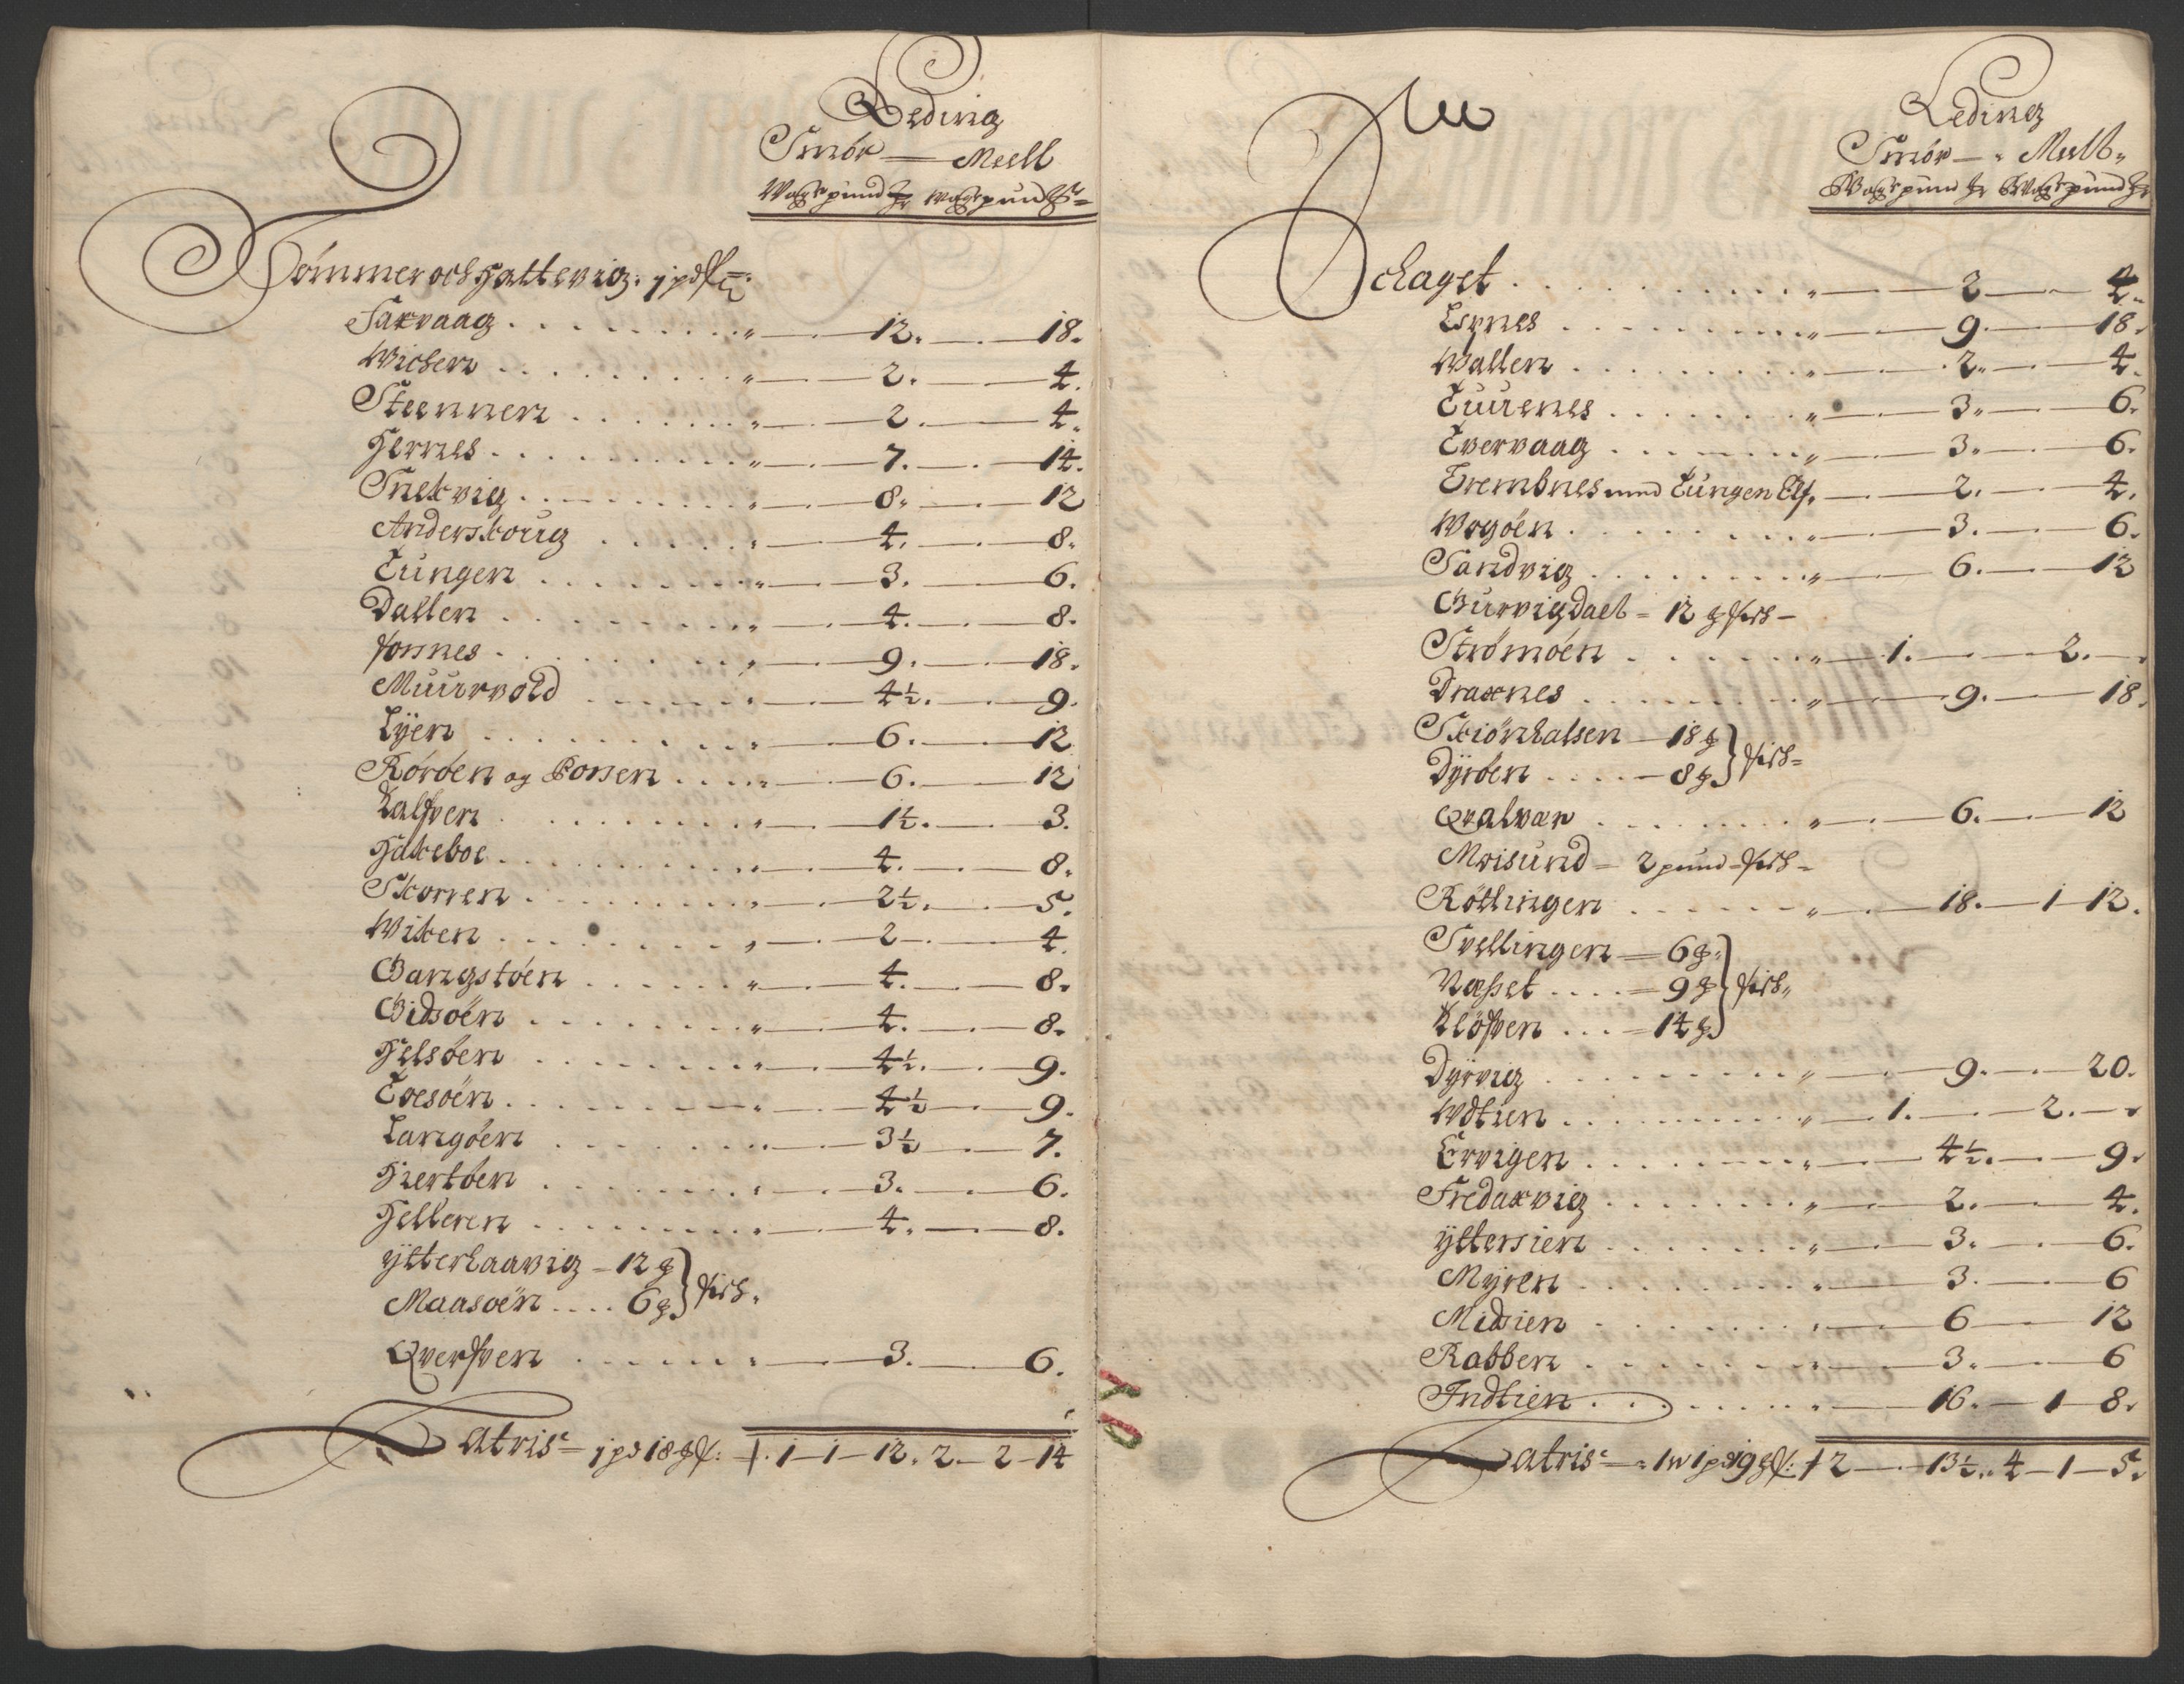 Leding
Smör — Meell
Wog pund ℔ Wog pund ℔
Sömmer och Hattevig. 1 pd f
Saxvaag . . . . " — 12. — 18.
Wichen . . . . " — 2. — 4.
Steennen . . . . " — 2. — 4.
Hernes . . . . " — 7. — 14.
Snekvig . . . . " — 8. — 12
Anderskoug . . . . " — 4. — 8.
Tungen . . . . " — 3. — 6.
Dallen . . . . " — 4. — 8.
fonnes . . . . " — 9. — 18.
Muurvold . . . . " — 4½. — 9.
Lÿen . . . . " — 6. — 12
Röröen og Bossen . . . . " — 6. — 12
Kalfven . . . . " — 1½. — 3.
Hakeboe . . . . " — 4. — 8.
Skorren . . . . " — 2½. — 5.
Wiken . . . . " — 2 — 4.
Gangstöen . . . . " — 4. — 8.
Gidsöen . . . . " — 4. — 8.
Helsöen . . . . " — 4½. — 9.
Evesöen . . . . " — 4½ — 9.
Langöen . . . . " — 3½ — 7.
Hiertöen . . . . " — 3. — 6.
Helleren . . . . " — 4. — 8.
ÿtterhaavig — 12 ℔ } fish.
Maasöen . . . . 6 ℔
Qverfven . . . . " — 3. — 6.
Latris — 1 pd 18 ℔ f: — 1 — 1 — 12. 2 — 2 — 14
Leding
Smör — Meell
Wog pund ℔ Wog pund ℔
Schaget . . . . " — 2 — 4.
Esqnes . . . . " — 9. — 18.
Wallen . . . . " — 2. — 4.
Tuuenes . . . . " — 3. — 6.
Tvervaag . . . . " — 3. — 6.
Trembnes med Tungen Elf. — 2. — 4.
Wogöen . . . . " — 3. — 6.
Sandvig . . . . " — 6. — 12
Gurvigdael — 12 ℔ fish —
Strømöen . . . . " — 1. — 2. —
Draxnes . . . . " — 9. — 18.
Skiönhalsen — 18 ℔ } fish —
Dÿröen . . . . — 8 ℔
Qvalvær . . . . " — 6. — 12
Meisund — 2 pund fish —
Röttingen . . . . " — 18. — 1 — 12.
Svellingen — 6 ℔ } fish
Næsset . . . . — 9 ℔
Klöfven . . . — 14 ℔
Dÿrvig . . . . " — 9. — 20.
Wdtien . . . . " — 1. — 2. —
Ervigen . . . . " — 4½. — 9.
Fredaxvig . . . . " — 2. — 4.
ÿttersien . . . . " — 3. — 6.
Mÿren . . . . " — 3. — 6
Midsien . . . . " — 6 — 12
Rabben . . . . " — 3. — 6
Indtien . . . . " — 16. — 1 — 8.
Latris — 1 w 1 pd 19 ℔ f: 2 — 13½. 4 — 1 — 5.